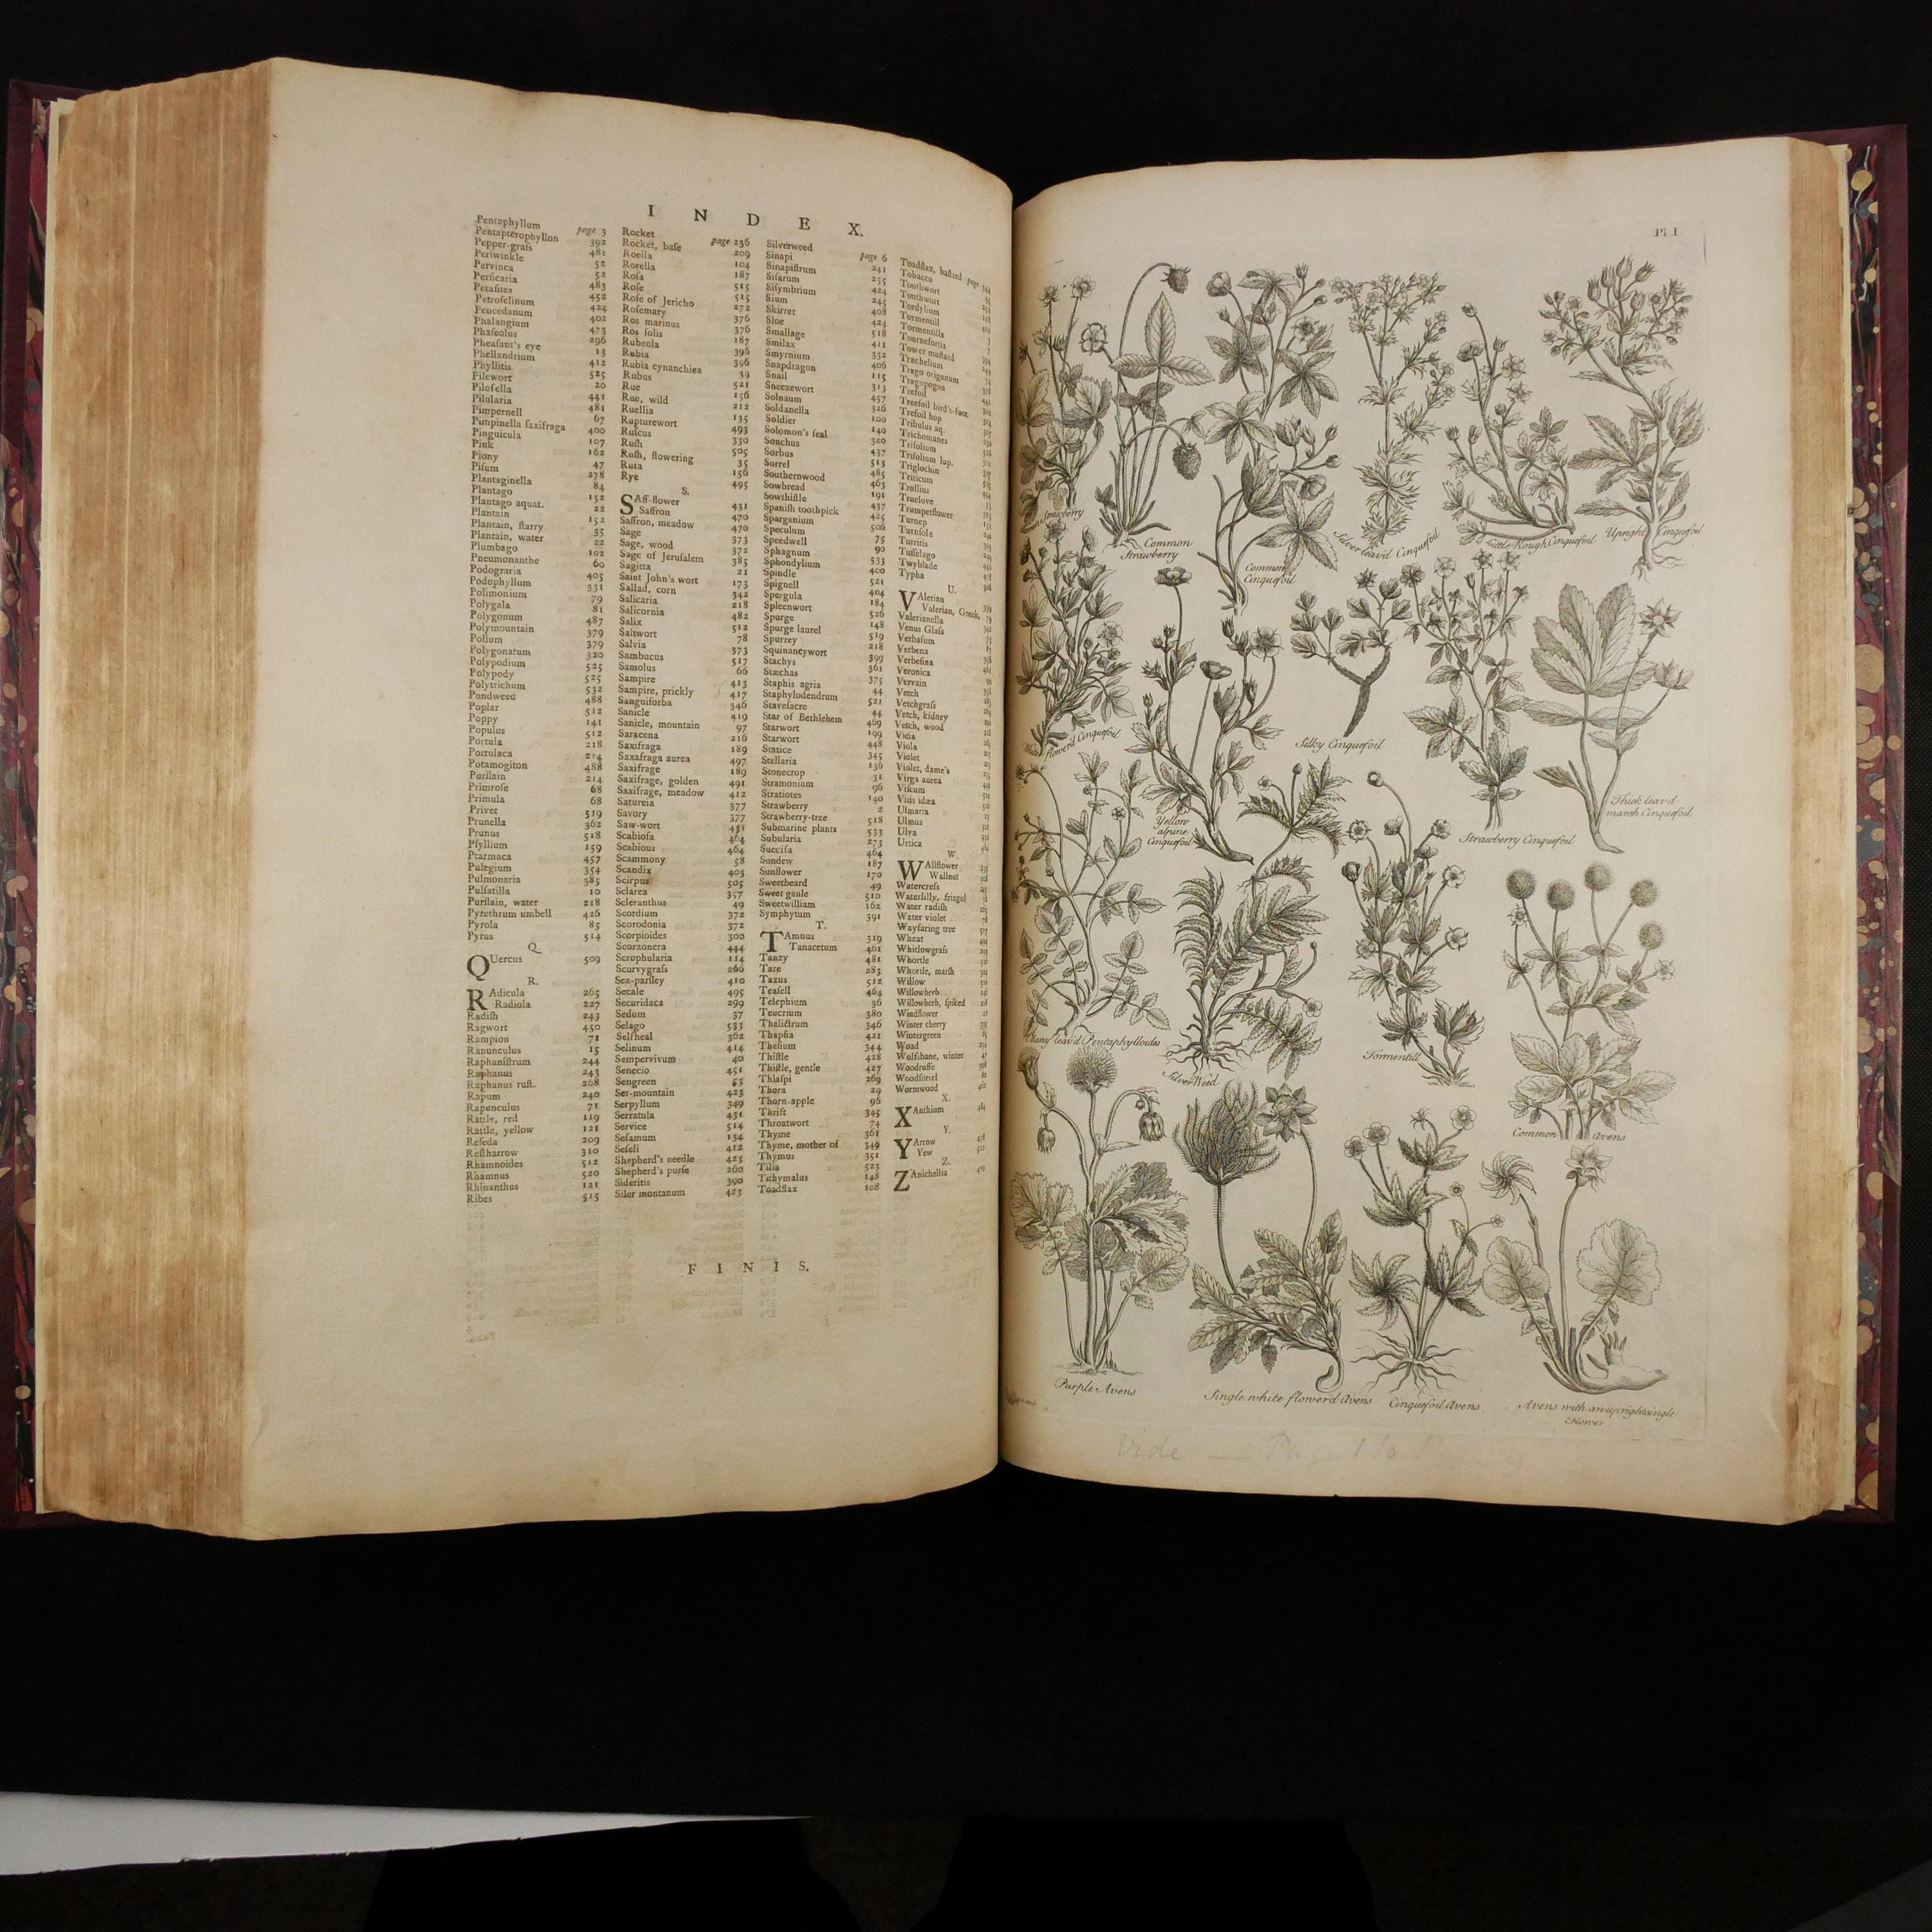 INDEX.
Pentaphyllum page 3
Pentapterophyllon 392
Pepper-graſs 481
Periwinkle 52
Pervinca 52
Perſicaria 483
Petaſites 452
Petroſelinum 424
Peucedanum 402
Phalangium 473
Phaſeolus 296
Pheaſant's eye 13
Phellandrium 412
Phyllitis 525
Pilewort 20
Piloſella 441
Pilularia 481
Pimpernell 67
Pimpinella ſaxifraga 400
Pinguicula 107
Pink 162
Piony 47
Piſum 278
Plantaginella 84
Plantago 152
Plantago aquat. 22
Plantain 152
Plantain, ſtarry 35
Plantain, water 22
Plumbago 102
Pneumonanthe 60
Podograria 405
Podophyllum 331
Polimonium 79
Polygala 81
Polygonum 487
Polymountain 379
Polium 379
Polygonatum 320
Polypodium 525
Polypody 525
Polytrichum 532
Pondweed 488
Poplar 512
Poppy 141
Populus 512
Portula 218
Portulaca 214
Potamogiton 488
Purſlain 214
Primroſe 68
Primula 68
Privet 519
Prunella 362
Prunus 518
Pſyllium 159
Ptarmaca 457
Pulegium 354
Pulmonaria 385
Pulſatilla 10
Purſlain, water 218
Pyrethrum umbell 426
Pyrola 85
Pyrus 514
Q.
QUercus 509
R.
RAdicula 265
Radiola 227
Radiſh 243
Ragwort 450
Rampion 71
Ranunculus 15
Raphaniſtrum 244
Raphanus 243
Raphanus ruſt. 268
Rapum 240
Rapunculus 71
Rattle, red 119
Rattle, yellow 121
Reſeda 209
Reſtharrow 310
Rhamnoides 512
Rhamnus 520
Rhinanthus 121
Ribes 515
Rocket page 236
Rocket, baſe 209
Roella 104
Rorella 187
Roſa 515
Roſe 515
Roſe of Jericho 272
Roſemary 376
Ros marinus 376
Ros ſolis 187
Rubeola 396
Rubia 396
Rubia cynanchica 39
Rubus 521
Rue 156
Rue, wild 212
Ruellia 135
Rupturewort 493
Ruſcus 330
Ruſh 505
Ruſh, flowering 35
Ruta 156
Rye 495
S.
SAff-flower 431
Saffron 470
Saffron, meadow 470
Sage 373
Sage, wood 372
Sage of Jeruſalem 385
Sagitta 21
Saint John's wort 173
Sallad, corn 342
Salicaria 218
Salicornia 482
Salix 512
Saltwort 78
Salvia 373
Sambucus 517
Samolus 66
Sampire 413
Sampire, prickly 417
Sanguiſorba 346
Sanicle 419
Sanicle, mountain 97
Saracena 216
Saxifraga 189
Saxafraga aurea 497
Saxifrage 189
Saxifrage, golden 491
Saxifrage, meadow 412
Satureia 377
Savory 377
Saw-wort 431
Scabioſa 464
Scabious 464
Scammony 58
Scandix 403
Scirpus 505
Sclarea 357
Scleranthus 49
Scordium 372
Scorodonia 372
Scorpioides 300
Scorzonera 444
Scrophularia 114
Scurvygraſs 266
Sea-parſley 410
Secale 495
Securidaca 299
Sedum 37
Selago 533
Selfheal 362
Selinum 414
Sempervivum 40
Senecio 451
Sengreen 53
Ser-mountain 423
Serpyllum 349
Serratula 431
Service 514
Seſamum 134
Seſeli 412
Shepherd's needle 423
Shepherd's purſe 260
Sideritis 390
Siler montanum 423
Silverweed page 6
Sinapi 241
Sinapiſtrum 255
Siſarum 424
Siſymbrium 245
Sium 408
Skirret 424
Sloe 518
Smallage 411
Smilax 332
Smyrnium 406
Snapdragon 115
Snail 313
Sneezewort 457
Solnaum 326
Soldanella 100
Soldier 140
Solomon's ſeal 320
Sonchus 437
Sorbus 513
Sorrel 485
Southernwood 463
Sowbread 191
Sowthiſtle 437
Spaniſh toothpick 425
Sparganium 506
Speculum 75
Speedwell 90
Sphagnum 533
Sphondylium 400
Spindle 521
Spignell 404
Spergula 184
Spleenwort 526
Spurge 148
Spurge laurel 519
Spurrey 218
Squinancywort 399
Stachys 361
Stæchas 375
Staphis agria 44
Staphylodendrum 521
Staveſacre 44
Star of Bethlehem 469
Starwort 199
Starwort 448
Statice 345
Stellaria 136
Stonecrop 31
Stramonium 96
Stratiotes 140
Strawberry 2
Strawberry-tree 518
Submarine plants 533
Subularia 273
Succiſa 464
Sundew 187
Sunflower 170
Sweetbeard 49
Sweet gaule 510
Sweetwilliam 162
Symphytum 391
T.
TAmnus 319
Tanacetum 461
Tanzy 481
Tare 283
Taxus 512
Teaſell 464
Telephium 36
Teucrium 380
Thalictrum 346
Thapſia 421
Theſium 344
Thiſtle 428
Thiſtle, gentle 427
Thlaſpi 269
Thora 29
Thorn-apple 96
Thrift 345
Throatwort 74
Thyme 361
Thyme, mother of 349
Thymus 351
Tilia 523
Tithymalus 148
Toadflax 108
Toadflax, baſtard page 344
Tobacco
Toothwort
Toothwort
Tordylium
Tormentill
Tormentilla
Tournefortis
Tower muſtard
Trachelium
Trago origanum
Tragopogon
Trefoil
Treefoil bird's-foot
Trefoil hop
Tribulus aq.
Trichomanes
Trifolium
Trifolium lup.
Triglochin
Triticum
Trollius
Truelove
Trumpetflower
Turnep
Turnſole
Turritis
Tuſſilago
Twyblade
Typha
U.
VAlerian
Valerian, Greek,
Valerianella
Venus Glaſs
Verbaſum
Verbena
Verbeſina
Veronica
Vervain
Vetch
Vetchgraſs
Vetch, kidney
Vetch, wood
Vicia
Viola
Violet
Violet, dame's
Virga aurea
Viſcum
Vitis idæa
Ulmaria
Ulmus
Ulva
Urtica
W.
WAllflower
Wallnut
Watercreſs
Waterlilly, fringed
Water radiſh
Water violet
Wayfaring tree
Wheat
Whitlowgraſs
Whortle
Whortle, marſh
Willow
Willowherb
Willowherb, ſpiked
Windflower
Winter cherry
Wintergreen
Woad
Wolfſbane, winter
Woodruffe
Woodſorrel
Wormwood
X.
XAnthium
Y.
YArrow
Yew
Z.
ZAnichellia
FINIS.
Pl. I
Strawberry
Common
Strawberry
Common
Cinquefoil
Silver leav'd Cinquefoil
Little Rough Cinquefoil
Upright Cinquefoil
White flower'd Cinquefoil
Yellow
alpine
Cinquefoil
Silky Cinquefoil
Strawberry Cinquefoil
Thick leav'd
marsh Cinquefoil
Many leav'd Pentaphylloides
Silver Weed
Tormentill
Common Avens
Purple Avens
Single white flower'd Avens
Cinquefoil Avens
Avens with an upright single
Flower
Vide — Page 1 to